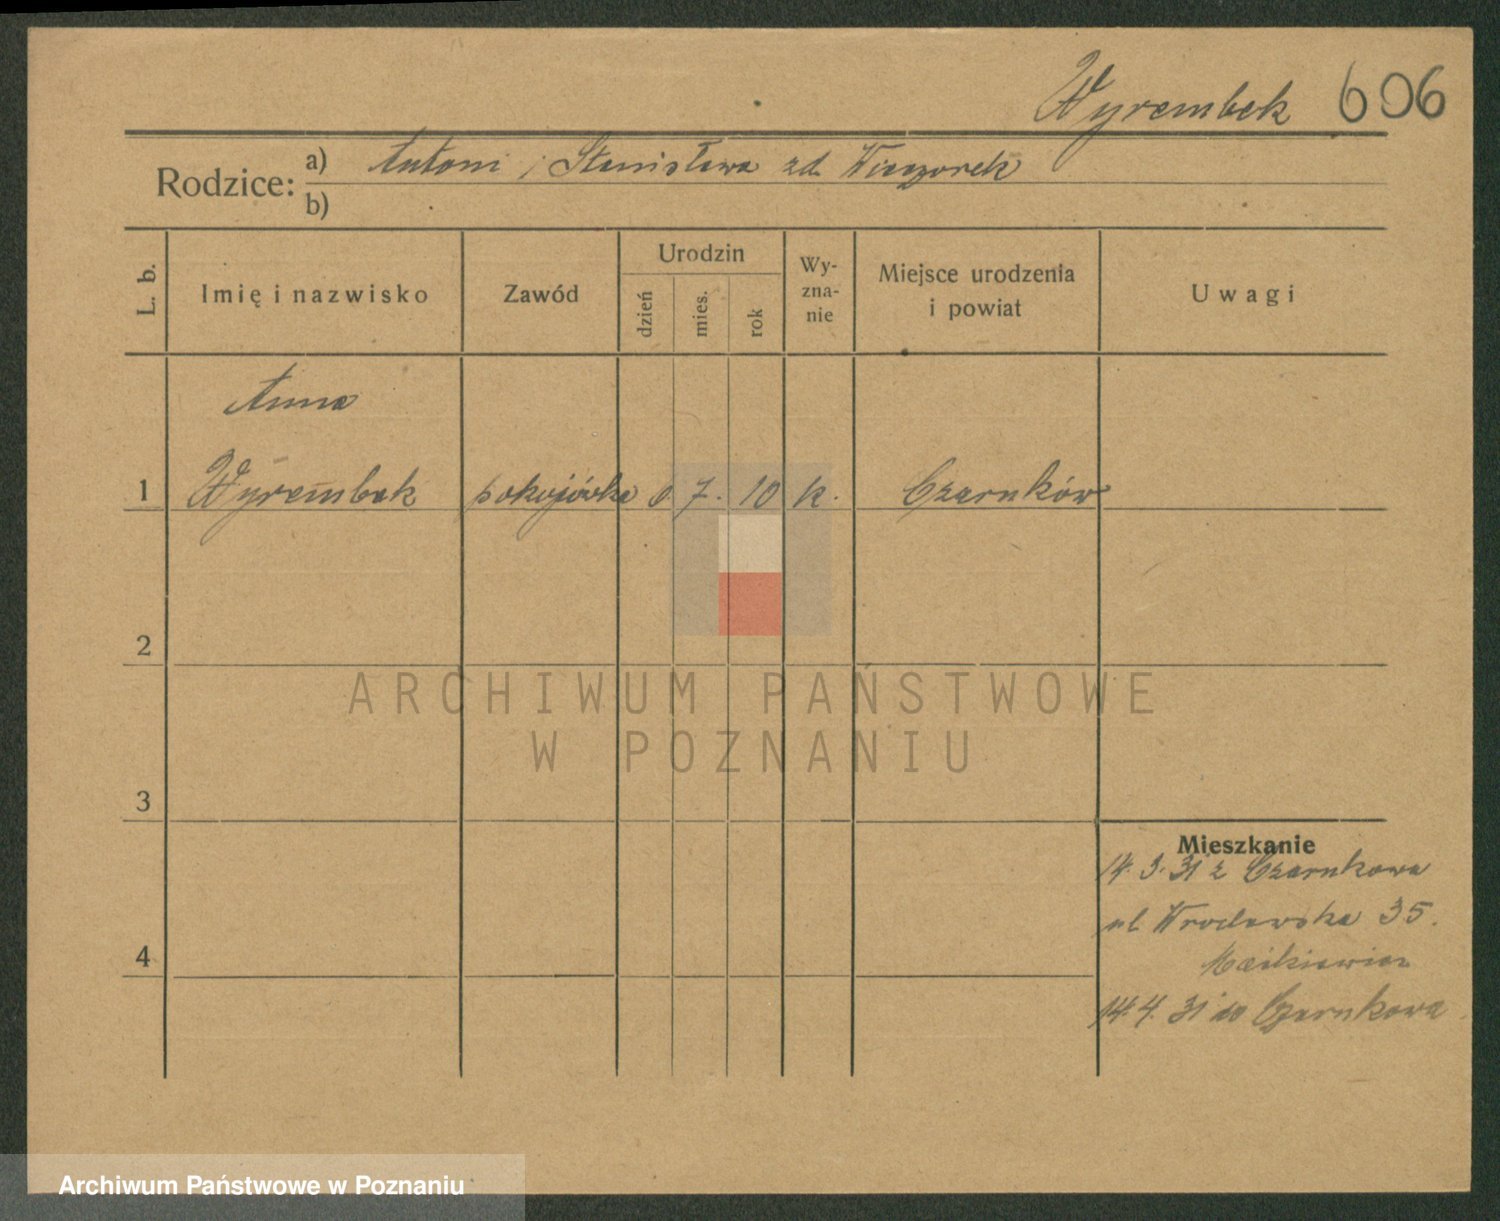 Wyrembek 606
Rodzice: a) Antoni i Stanisława zd. Wieczorek
b)
L. b.
Imię i nazwisko
Zawód
Urodzin
dzień
mies.
rok
Wy-
zna-
nie
Miejsce urodzenia
i powiat
Uwagi
Anna
1 Wyrembek pokojówka 7. 10 k. Czarnków
2
3
4
Mieszkanie
14. 3. 31 z Czarnkowa
ul Wrocławska 35.
14. 4. 31 do Czarnkowa
ARCHIWUM PAŃSTWOWE
W POZNANIU
Archiwum Państwowe w Poznaniu